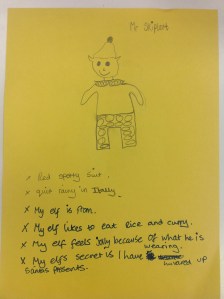 Mr
x Red spotty suit.
x quiet bunny in
x My elf is from.
x My elf likes to eat Rice and curry.
x My elf feels jolly because of what he is
wearing.
x My elfs secret is I have muxed up
santas presents.